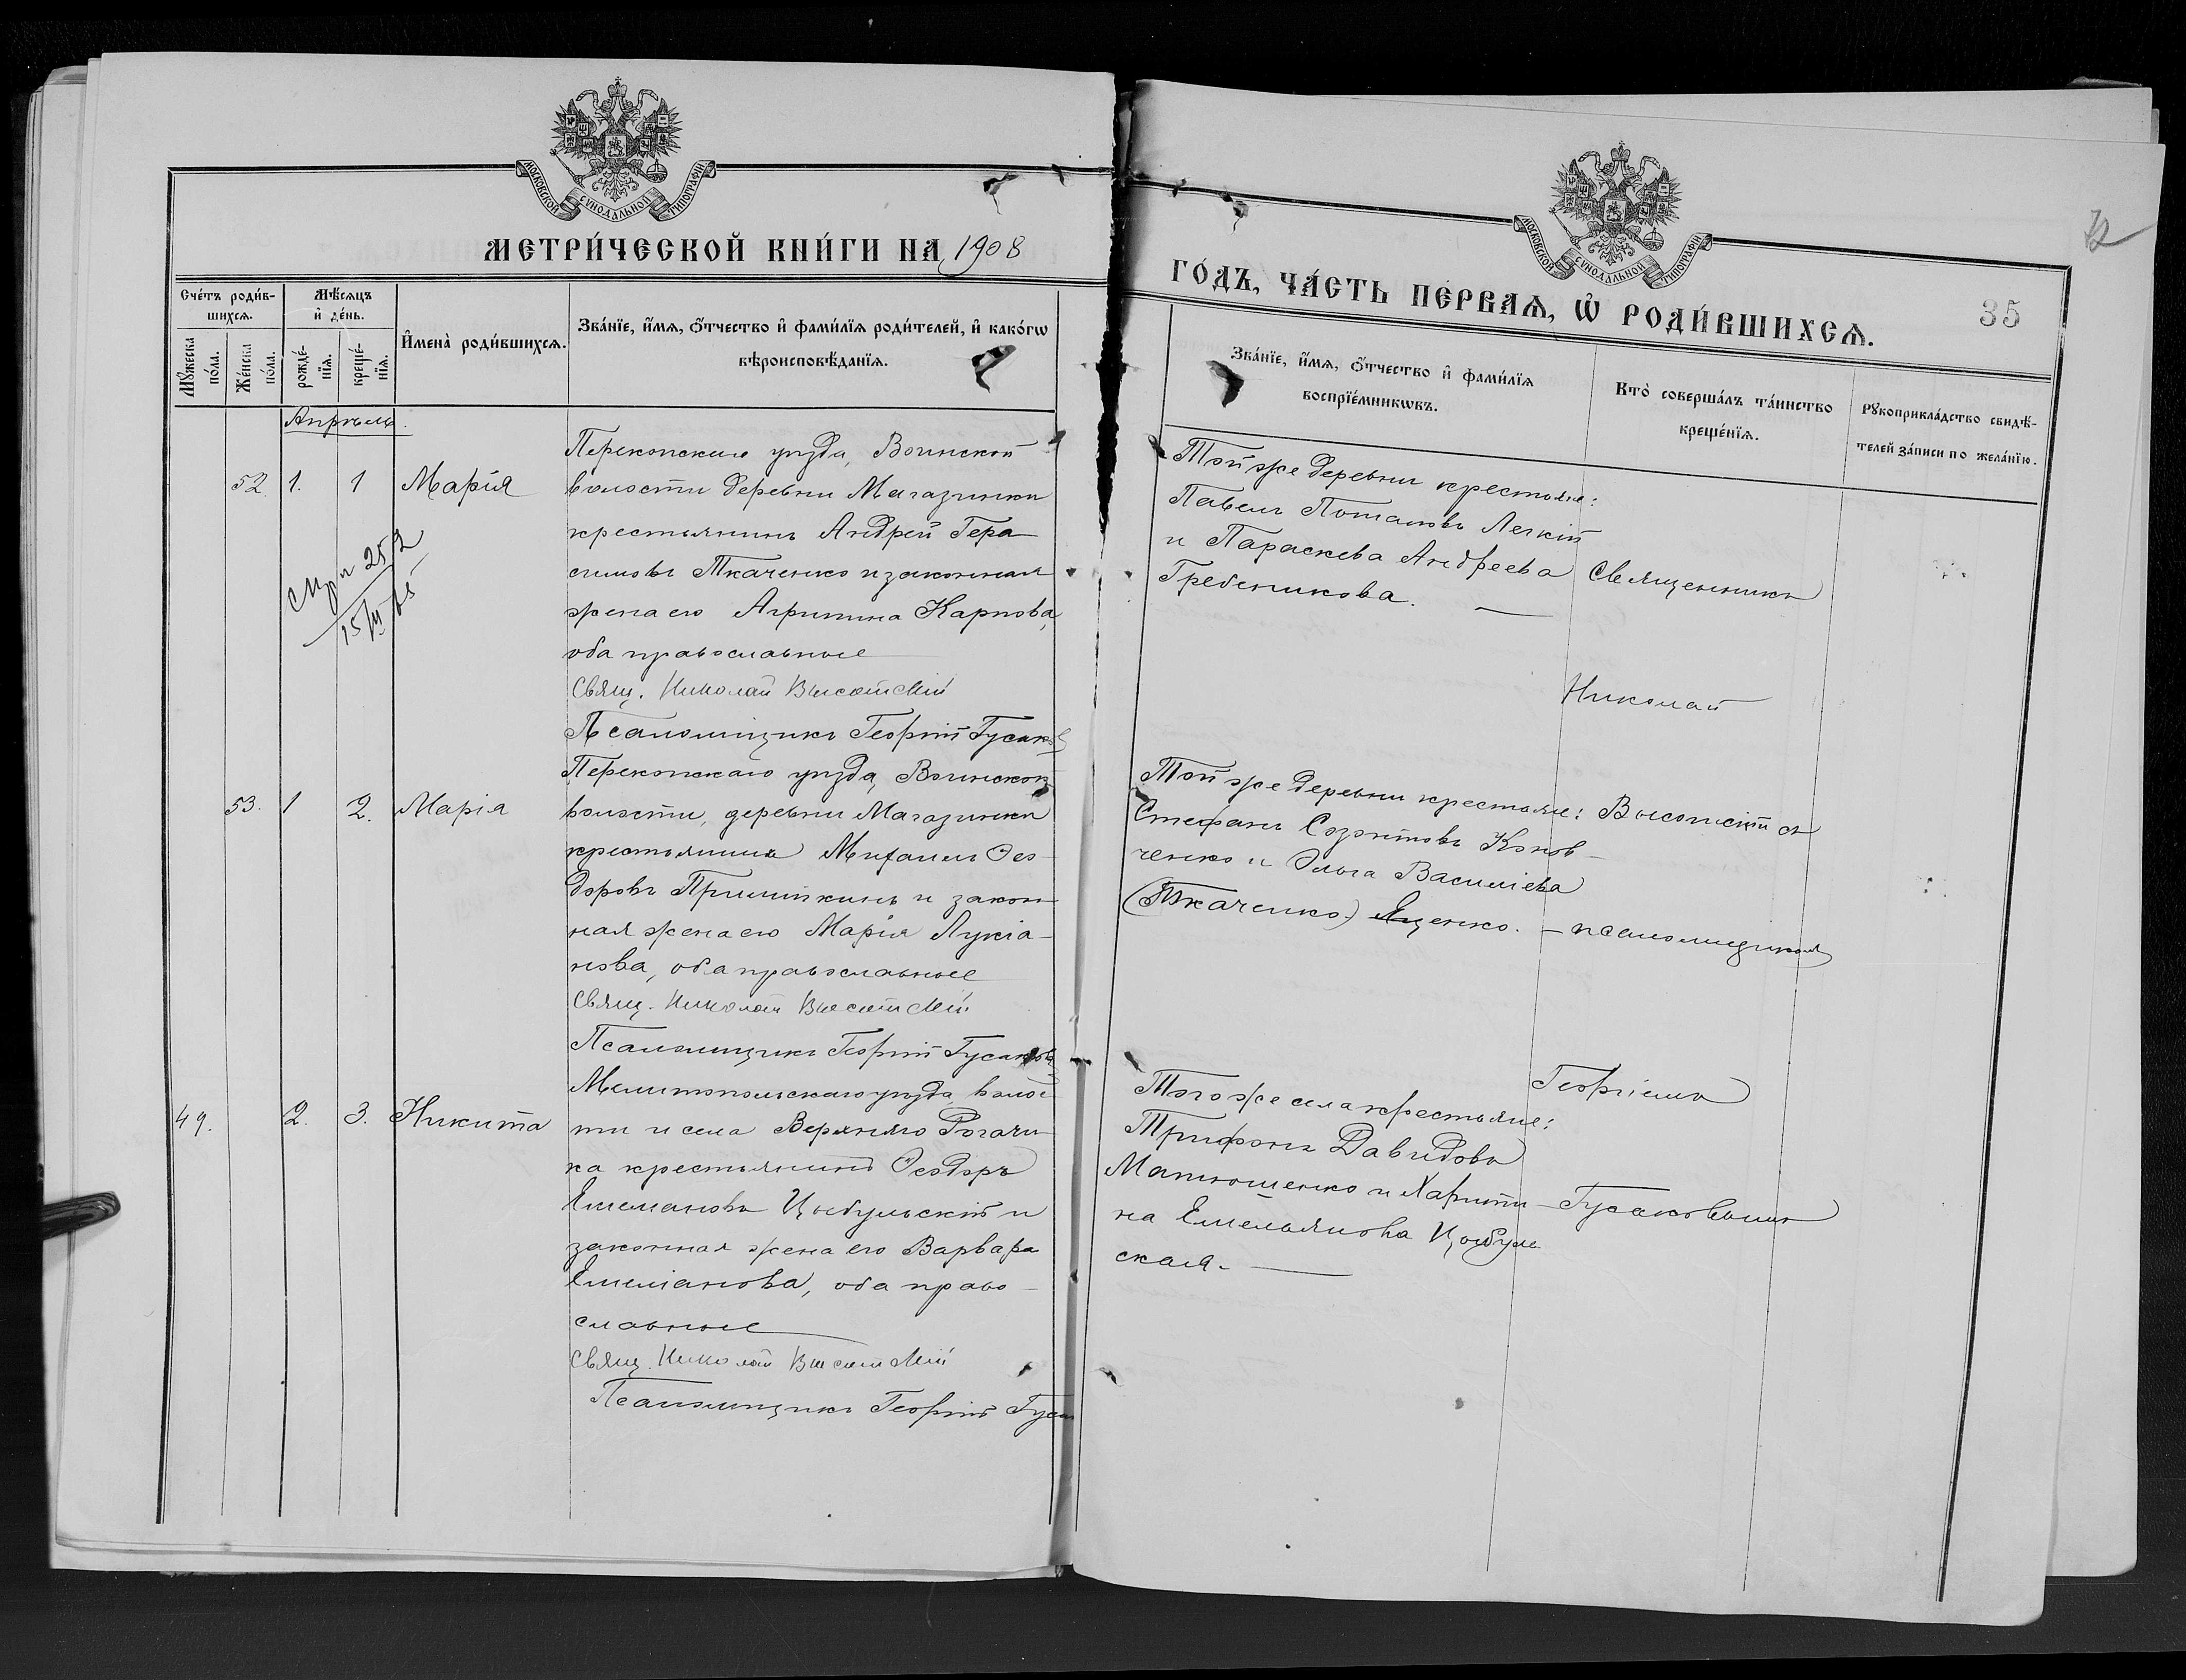 МОСКОВСКОЙ СѴНОДАЛЬНОЙ ТИПОГРАФІИ
МЕТРИ́ЧЕСКОЙ КНИ́ГИ НА 1908
Сче́тъ роди́в-
шихсѧ.
Мꙋ́жеска
по́ла.
Же́нска
по́ла.
Мѣ́сѧцъ
и҆ де́нь.
рожде́-
нїѧ.
креще́-
нїѧ.
И҆мена̀ роди́вшихсѧ.
Зва́нїе, и҆́мѧ, ѻ҆́тчество и҆ фами́лїѧ роди́телей, и҆ како́гѡ
вѣроисповѣ́данїѧ.
Апрѣль.
52 1. 1 Марія
Перекопскаго уѣзда, Воинской
волости деревни Магазинки
крестьянинъ Андрей Гера
симовъ Ткаченко и законная
жена его Агрипина Карпова,
оба православные
Свящ. Николай Высотскій
Псаломщикъ Георгій Гусаковъ
15/VI 65
53. 1 2. Марія
Перекопскаго уѣзда, Воинской
волости, деревни Магазинки
крестьянинъ Михаилъ Ѳео-
доровъ Примиткинъ и закон-
ная жена его Марія Лукіа-
нова, оба православные
Свящ. Николай Высотскій
Псаломщикъ Георгій Гусаковъ
49. 2. 3. Никита
Мелитопольскаго уѣзда, волос
ти и села Верхняго Рогачи
ка крестьянинъ Ѳеодоръ
Емеліановъ Цыбульскій и
законная жена его Варвара
Емеліанова, оба право-
славные
Свящ. Николай Высотскій
Псаломщикъ Георгій Гуса
МОСКОВСКОЙ СѴНОДАЛЬНОЙ ТИПОГРАФІИ
72
35
ГО́ДЪ, ЧА́СТЬ ПЕ́РВАѦ, Ѽ РОДИ́ВШИХСѦ.
Зва́нїе, и҆́мѧ, ѻ҆́тчество и҆ фами́лїѧ
воспрїе́мникѡвъ.
Кто̀ соверша́лъ та́инство
креще́нїѧ.
Рꙋкоприкла́дство свидѣ́-
телей за́писи по жела́нїю.
Той же деревни крестьяне:
Павелъ Потаповъ Легкій
и Параскева Андреева
Гребеникова.
Священникъ
Николай
Той же деревни крестьяне:
Стефанъ Созонтовъ Конов-
ченко и Ольга Василіева
(Ткаченко) Яценко.
Высотскій съ
псаломщикомъ
Того же села крестьяне:
Трифонъ Давидовъ
Матюшенко и Харити-
на Емельянова Цыбуль
ская.
Георгіемъ
Гусаковымъ